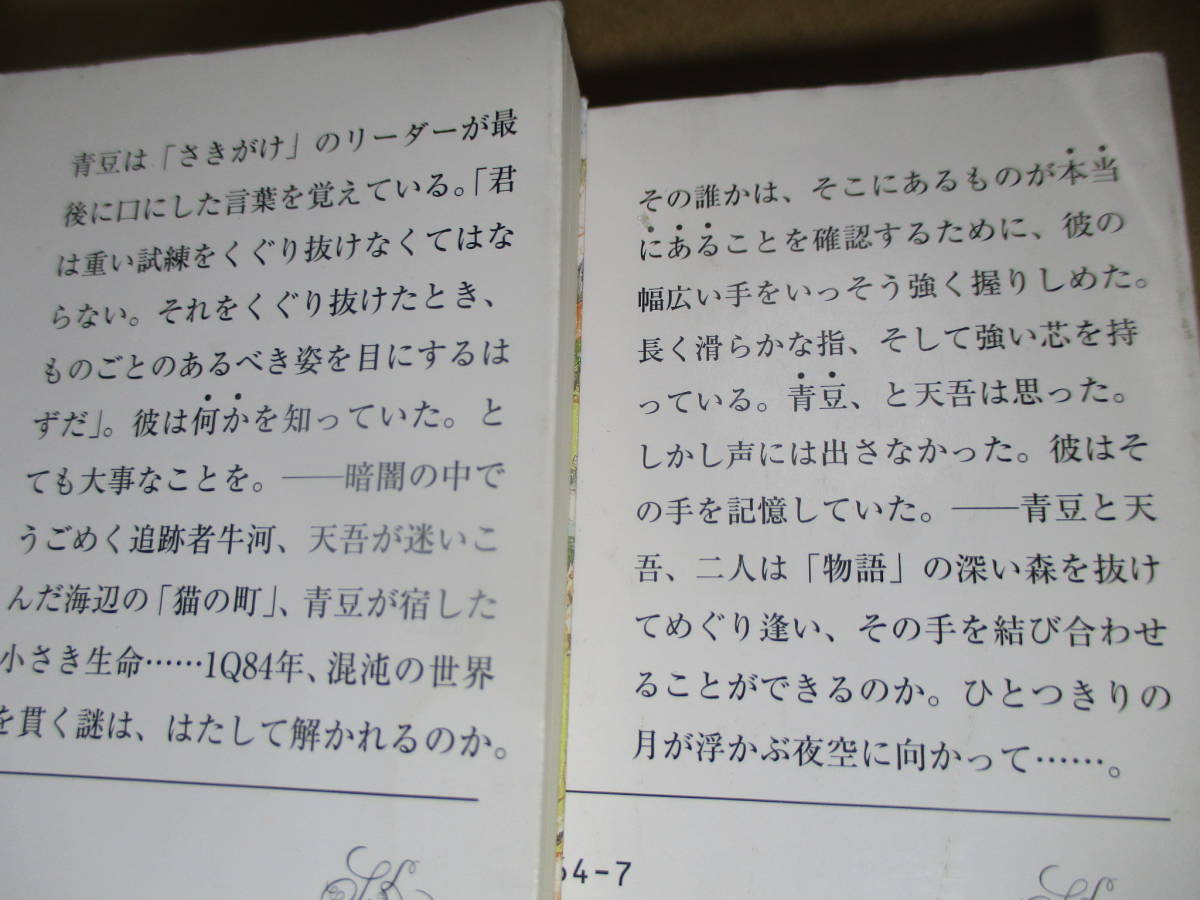 青豆は「さきがけ」のリーダーが最
後に口にした言葉を覚えている。「君
は重い試練をくぐり抜けなくてはな
らない。それをくぐり抜けたとき、
ものごとのあるべき姿を目にするは
ずだ」。彼は何かを知っていた。と
ても大事なことを。――暗闇の中で
うごめく追跡者牛河、天吾が迷いこ
んだ海辺の「猫の町」、青豆が宿した
小さき生命……1Q84年、混沌の世界
を貫く謎は、はたして解かれるのか。
その誰かは、そこにあるものが本当
にあることを確認するために、彼の
幅広い手をいっそう強く握りしめた。
長く滑らかな指、そして強い芯を持
っている。青豆、と天吾は思った。
しかし声には出さなかった。彼はそ
の手を記憶していた。――青豆と天
吾、二人は「物語」の深い森を抜け
てめぐり逢い、その手を結び合わせ
ることができるのか。ひとつきりの
月が浮かぶ夜空に向かって……。
64-7